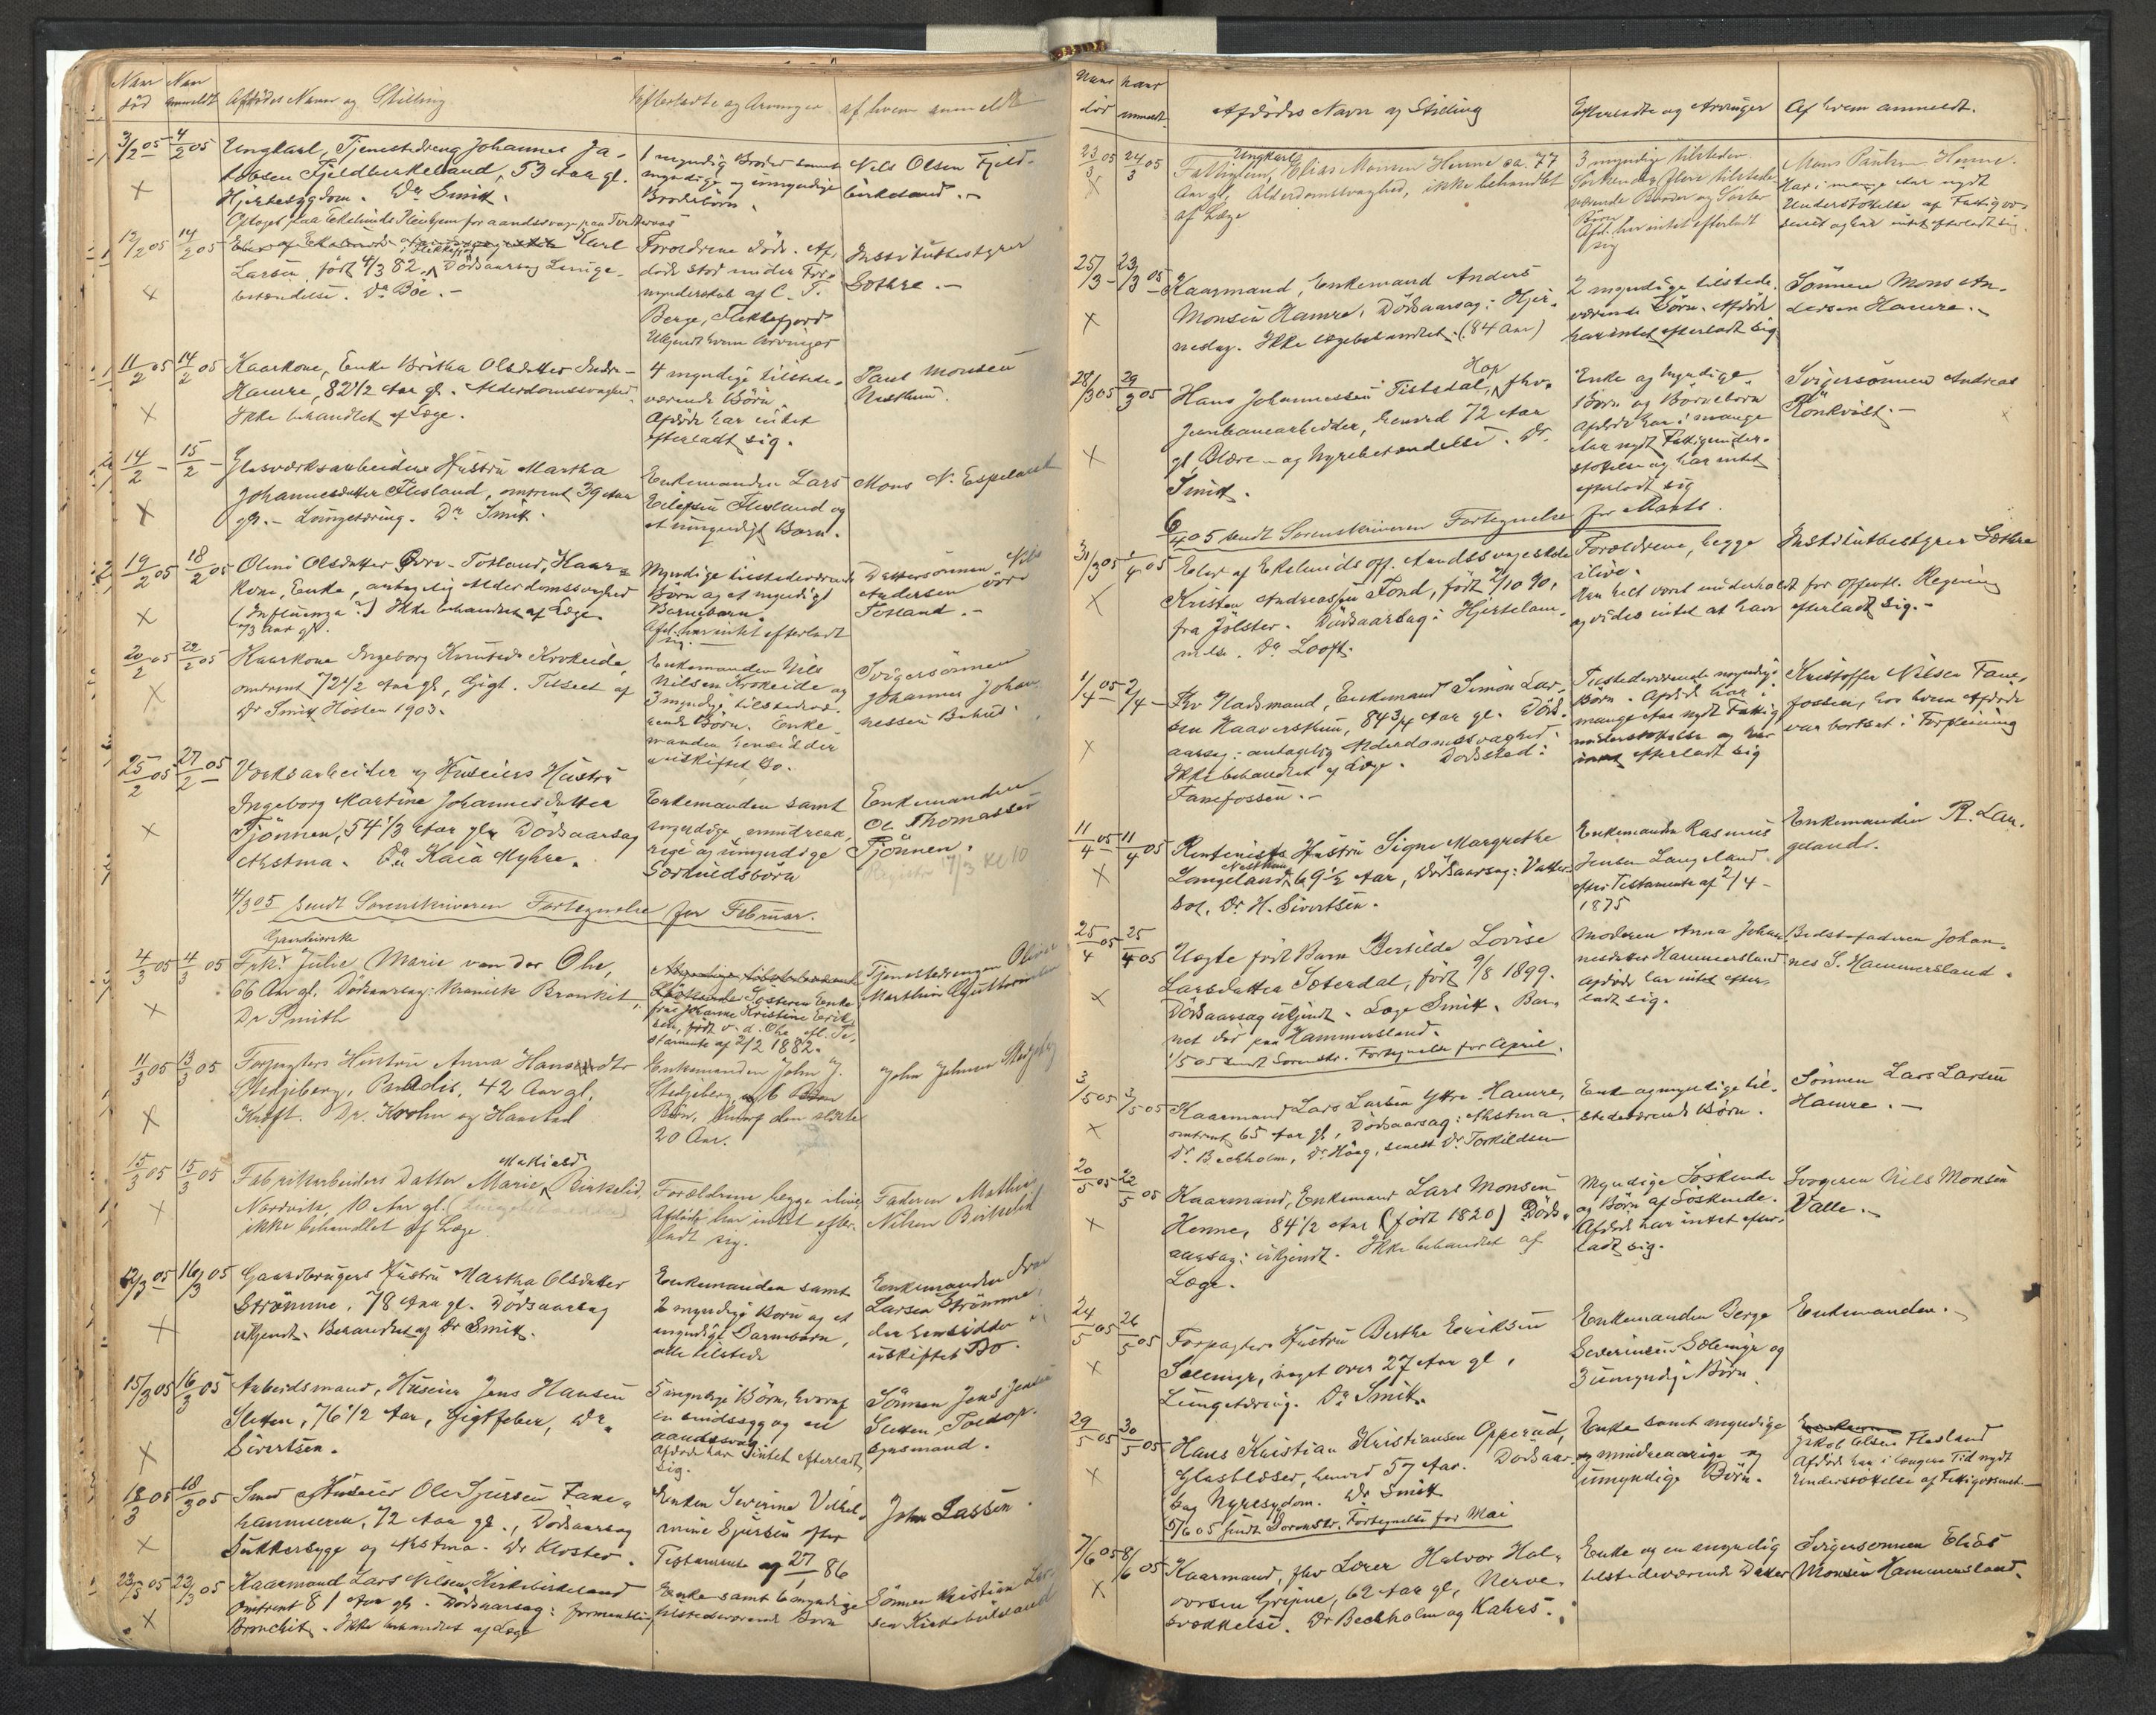 Naar Naar
död anmeldt Afdödes Navn og Stilling Efterladte og Arvinger af hvem anmeldt
3/2 05 4/2 05 Ungkarl, Tjenestedreng Johannes Ja-
kobsen Fjeldbirkeland, 53 Aar gl.
Hjertesygdom. Dr Smitt.
1 myndig Broder samt
myndige og umyndige
Broderbörn.
Nils Olsen Fjeld-
birkeland.-
Optaget paa Ekelunds Pleiehjem for aandssvage paa Tvetteraas
12/2 05 14/2 05 Karl
Larsen, födt 4/3 82. Dödsaarsag Lunge-
betændelse. Dr Böe.-
i Flekkefjord
Forældrene döde. Af-
döde stod under For-
mynderskab af C. T.
Berge, Flekkefjord
Ukjendt hvem Arvinger
Institutbestyrer
Sæthre.-
11/2 05 14/2 05 Kaarkone, Enke Britha Olsdatter Indre-
Hamre, 82 1/2 Aar gl. Alderdomssvaghed.
Ikke behandlet af Læge.
4 myndige tilstede-
værende Börn
Afdöde har intet
efterladt sig.
Paul Monsen
Nesttun.
14/2 - 15/2 - Glasværksarbeiders Hustru Martha
Johannesdatter Flesland, omtrent 39 Aar
gl.- Lungetæring. Dr Smitt.
Enkemanden Lars
Eilefsen Flesland og
et umyndigt Barn.
Mons N. Espeland
19/2 05 18/2 05 Oline Olsdatter Övre-Totland, Kaar-
kone, Enke, antagelig Alderdomssvaghed
(Influenza?) Ikke behandlet af Læge.
Myndige tilstedeværende
Börn og et myndigt
Barnebarn.
Afd. har intet efterladt
sig.
Dattersönnen Nils
Andersen övre
Totland.-
20/2 05 22/2 05 Kaarkone Ingeborg Knutsdr Krokeide,
omtrent 72 1/2 Aar gl, Gigt. Tilseet af
Dr Smitt Hösten 1903.
Enkemanden Nils
Nilsen Krokeide og
3 myndige tilstedevæ-
rende Börn. Enke-
manden hensidder
i uskiftet Bo.
Svigersönnen
Johannes Johan-
nessen
25/2 05 27/2 05 Værksarbeider og Huseiers Hustru
Ingeborg Martine Johannesdatter
Tjönnen, 54 1/3 Aar gl. Dödsaarsag
Astma. Dr Kaia Myhre.
Enkemanden samt
myndige, mindreaa-
rige og umyndige
Særkuldsbörn
Enkemanden
Ole Thomassen
Tjönnen.
Registr 17/3 Kl 10
4/3 05 sendt Sorenskriveren Fortegnelse for Februar.
4/3 05 4/3 05 Gaardeierske
Frk. Julie Marie von der Ohe,
66 Aar gl. Dödsaarsag: Kronisk Bronkit,
Dr Smith
Södskende Sösteren Enke-
frue Johanne Kristine Erik-
sen, födt v. d. Ohe, efl. Te-
stamente af 2/2 1882.
Tjenestedrengen Oliver
Marthin Guttormsen
11/3 05 13/3 05 Forpagters Hustru Anna Hansdtr
Stedjeberg, Paradis, 42 Aar gl.
Kræft. Dr. Krohn og Haustad
Enkemanden John J.
Stedjeberg og 6
Börn, hvoraf den ældste
20 Aar.
John Johnsen Stedjeberg
15/3 05 15/3 05 Fabrikarbeiders Datter Marie Mathiasd Birkelid
Nordvik, 10 Aar gl.
ikke behandlet af Læge
Forældrene begge ilive
Afdöde har intet efter-
ladt sig.
Faderen Mathi-
Nilsen Birkelid
12/3 05 16/3 05 Gaardbrugers Hustru Martha Olsdatter
Strömme, 78 Aar gl. Dödsaarsag
ukjendt. Behandlet af Dr Smitt.
Enkemanden samt
2 myndige Börn og et
myndige Barnebarn,
alle tilstede
Enkemanden
Larsen Strömme,
der hensidder i
uskiftet Bo.
15/3 05 16/3 05 Arbeidsmand, Huseier Jens Hansen
Sletten, 76 1/2 Aar, Gigtfeber, Dr
Sivertsen.
5 myndige Börn, hvoraf
en sindssyg og en
aandssvag
Afdöde har Intet efterladt
sig.
Sönnen Jens Jensen
Sletten, Tolop-
synsmand.
18/3 05 18/3 05 Smed og Huseier Ole Sjursen Fane-
hammeren, 72 Aar gl., Dödsaarsag
Sukkersyge og Astma. Dr Kloster.
Enken Severine Vilhel-
mine Sjursen efter
Testamente af 27/1 86
John Lassen
23/3 05 23/3 05 Kaarmand Lars Nilsen Kirkebirkeland
omtrent 81 Aar gl. Dödsaarsag: formentlig
Bronchit. Ikke behandlet af Læge
Enke samt 6 myndige
tilstedeværende Börn
Sönnen Kristian Lar-
sen Kirkebirkeland
Naar Naar
död anmeldt. Afdödes Navn og Stilling Efterladte og Arvinger Af hvem anmeldt.
23/3 05 24/3 05 Ungkarl
Fattiglem, Elias Monsen Henne ca. 77
Aar gl, Alderdomssvaghed, ikke behandlet
af Læge
3 myndige tilstede-
værende Brödre og Söster
Börn
Afd. har intet efterladt
sig
Mons Paulsen Henne.
Har i mange Aar nydt
Understöttelse af Fattigvæ-
senet og har intet efterladt sig.
25/3 - 23/3 05 Kaarmand, Enkemand Anders
Monsen Hamre. Dödsaarsag: Hjer-
neslag. Ikke lægebehandlet. (84 Aar)
2 myndige tilstede-
værende Börn. Afdöde
har intet efterladt sig
Sönnen Mons An-
dersen Hamre.-
28/3 05 29/3 05 Hans Johannessen Titlestad, Hop, fhv.
Jernbanearbeider, henved 72 Aar
gl, Blære- og Nyrebetændelse. Dr.
Smitt.
Enke og myndige
Börn og Börnebörn
Afdöde har i mange
Aar nydt Fattigunder-
stöttelse og har intet
efterladt sig
Svigersönnen Andreas
Rönkvist.-
6/4 05 sendt Sorenskriveren Fortegnelse for Marts.
31/3 05 1/4 05 Elev af Ekelunds off. Aandssvageskole
Kristen Andreassen Fond, födt 2/10 90,
fra Jölster. Dödsaarsag: Hjertelam-
melse. Dr Looft.
Forældrene, begge
ilive.
Har helt været underholdt for offentl. Regning
og vides intet at have efterladt sig.-
Institutbestyrer Sæthre
1/4 05 2/4 - Fhv Kadsmand, Enkemand Simon Lar-
sen Haaverstun, 84 3/4 Aar gl. Döds-
aarsag: antagelig Alderdomssvaghed.
Ikke behandlet af Læge. Dödssted:
Fanefossen.-
Tilstedeværende myndige
Börn. Afdöde har i
mange Aar nydt Fattig
understöttelse og har
intet efterladt sig
Kristoffer Nilsen Fane-
fossen, hos hvem Afdöde
var bortsat i Forpleining
11/4 05 11/4 05 Rentenists Hustru Signe Margrethe
Langeland, Nesttun 69 1/2 Aar, Dödsaarsag: Vatter-
sot. Dr. H. Sivertsen.
Enkemanden Rasmus
Jensen Langeland.
efter Testamente af 2/4 -
1875
Enkemanden R. Lan-
geland.
25/4 05 25/4 05 Uægte födt Barn Bertilde Lovise
Larsdatter Sæterdal, födt 9/8 1899.
Dödsaarsag ukjendt. Læge Smitt. Bar-
net död paa Hammersland.
Moderen Anna Johan-
nesdatter Hammersland
Afdöde har intet efter-
ladt sig.
Bedstefaderen Johan-
nes S. Hammersland.
1/5 05 sendt Sorenskr. Fortegnelse for April.
3/5 05 3/5 05 Kaarmand Lars Larsen Ytre Hamre,
omtrent 65 Aar gl, Dödsaarsag: Astma.
Dr. Bechholm, Dr. Höeg, senest Dr. Torkildsen
Enke og myndige til-
stedeværende Börn.
Sönnen Lars Larsen
Hamre.-
20/5 05 22/5 05 Kaarmand, Enkemand Lars Monsen
Henne, 84 1/2 Aar (födt 1820) Döds-
aarsag: ukjendt. Ikke behandlet af
Læge.
Myndige Söskende
og Börn af Söskende.
Afdöde har intet efter-
ladt sig.
Svogeren Nils Monsen
Valle.-
24/5 05 26/5 05 Forpagters Hustru Berthe Eriksen
Solemyr, noget over 27 Aar gl,
Lungetæring. Dr Smitt.
Enkemanden Berge
Severinsen Solemyr og
3 umyndige Börn.
Enkemanden.
29/5 05 30/5 05 Hans Kristian Kristiansen Opperud,
Glasblæser, henved 57 Aar. Dödsaar-
sag Nyresygdom. Dr Smitt
Enke samt myndige
og mindreaarige og
umyndige Börn.
Jakob Olsen Flesland
Afdöde har i længere Tid nydt
Understöttelse af Fattigvæsenet
5/6 05 sendt Sorenskr. Fortegnelse for Mai
7/6 05 8/6 05 Kaarmand, fhv Lærer Halvor Hal-
vorsen Grimme, 62 Aar gl, Nerve-
svækkelse. Dr Bechholm og Kahrs.
Enke og en myndig
tilstedeværende Datter
Svigersönnen Elias
Monsen Hammersland.